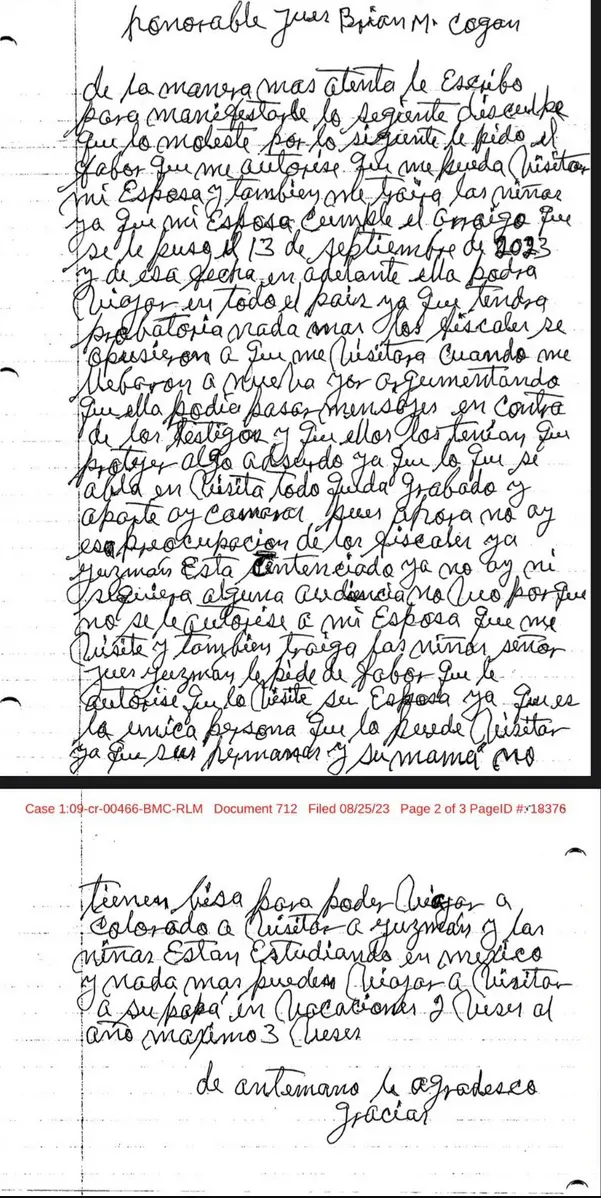 honorable Jues Brian M. Cogan
de la manera mas atenta le Escribo
para manifestarle lo segiente disculpe
que lo moleste por lo sigiente le pido el
fabor que me autorise que me pueda Visitar
mi Esposa y tambien me traiga las niñas
ya que mi Esposa Cumple el arraigo que
se le puso el 13 de septiembre de 2023
y de esa fecha en adelante ella podra
Viajar en todo el pais ya que tendra
probatoria nada mas los fiscales se
opusieron a que me Visitara cuando me
llebaron a nueba yor argumentando
que ella podia pasar mensajes en contra
de los testigos y que ellos los tenian que
protejer algo adsurdo ya que lo que se
abla en Visita todo queda grabado y
aparte ay camaras pues ahora no ay
esa preocupacion de los fiscales ya
guzman Esta Centenciado ya no ay ni
siquiera alguna audiencia no Veo por que
no se le autorise a mi Esposa que me
Visite y tambien traiga las niñas señor
jues guzman le pide de fabor que le
autorise que lo Visite su Esposa ya que es
la unica persona que lo puede Visitar
ya que sus hermanas y su mama no
Case 1:09-cr-00466-BMC-RLM Document 712 Filed 08/25/23 Page 2 of 3 PageID #: 18376
tienen bisa para poder Viajar a
colorado a Visitar a guzman y las
niñas Estan Estudiando en mexico
y nada mas pueden Viajar a Visitar
a su papá en Vacaciones 2 Veses al
año maximo 3 Veses
de antemano le agradesco
gracias